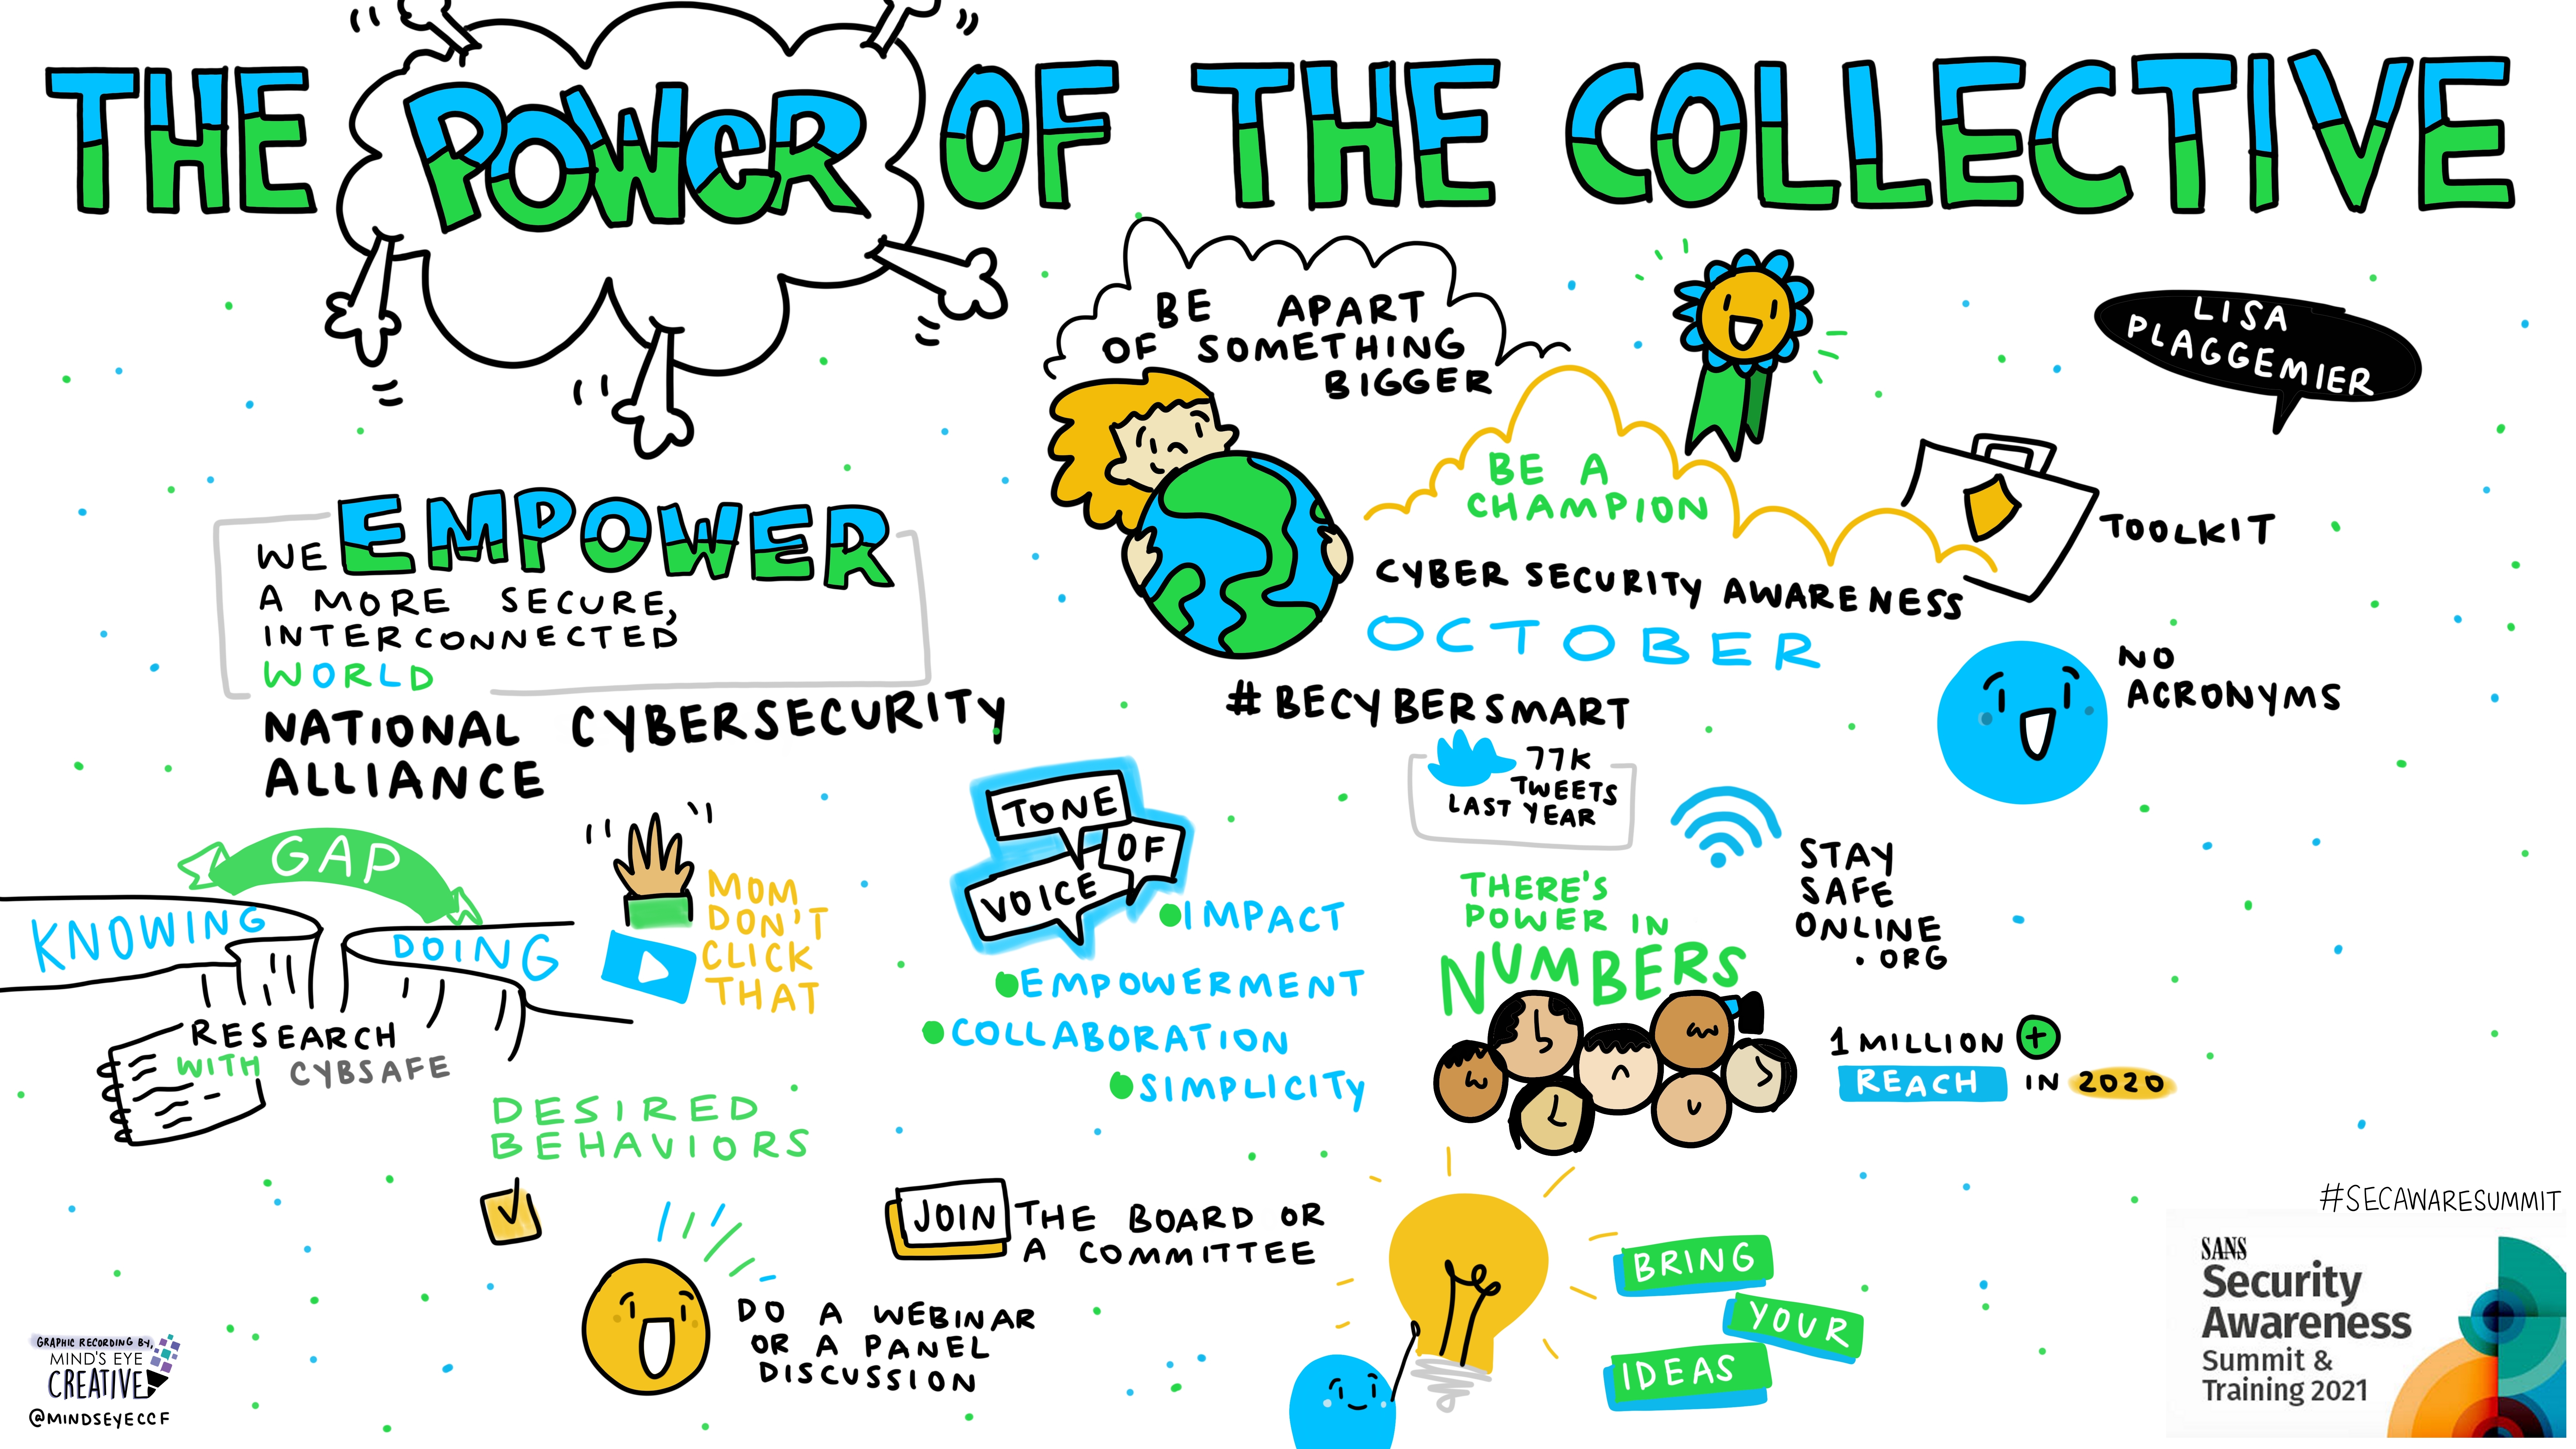 THE POWER OF THE COLLECTIVE
BE APART
OF SOMETHING
BIGGER
LISA
PLAGGEMIER
BE A
CHAMPION
TOOLKIT
CYBER SECURITY AWARENESS
OCTOBER
WE EMPOWER
A MORE SECURE,
INTERCONNECTED
WORLD
NATIONAL CYBERSECURITY
ALLIANCE
#BECYBERSMART
77K
TWEETS
LAST YEAR
NO
ACRONYMS
GAP
KNOWING
DOING
RESEARCH
WITH CYBSAFE
MOM
DON'T
CLICK
THAT
TONE
OF
VOICE
IMPACT
EMPOWERMENT
COLLABORATION
SIMPLICITY
THERE'S
POWER IN
NUMBERS
STAY
SAFE
ONLINE
.ORG
1 MILLION +
REACH IN 2020
DESIRED
BEHAVIORS
JOIN THE BOARD OR
A COMMITTEE
DO A WEBINAR
OR A PANEL
DISCUSSION
BRING
YOUR
IDEAS
#SECAWARESUMMIT
SANS
Security
Awareness
Summit &
Training 2021
GRAPHIC RECORDING BY,
MIND'S EYE
CREATIVE
@MINDSEYECCF